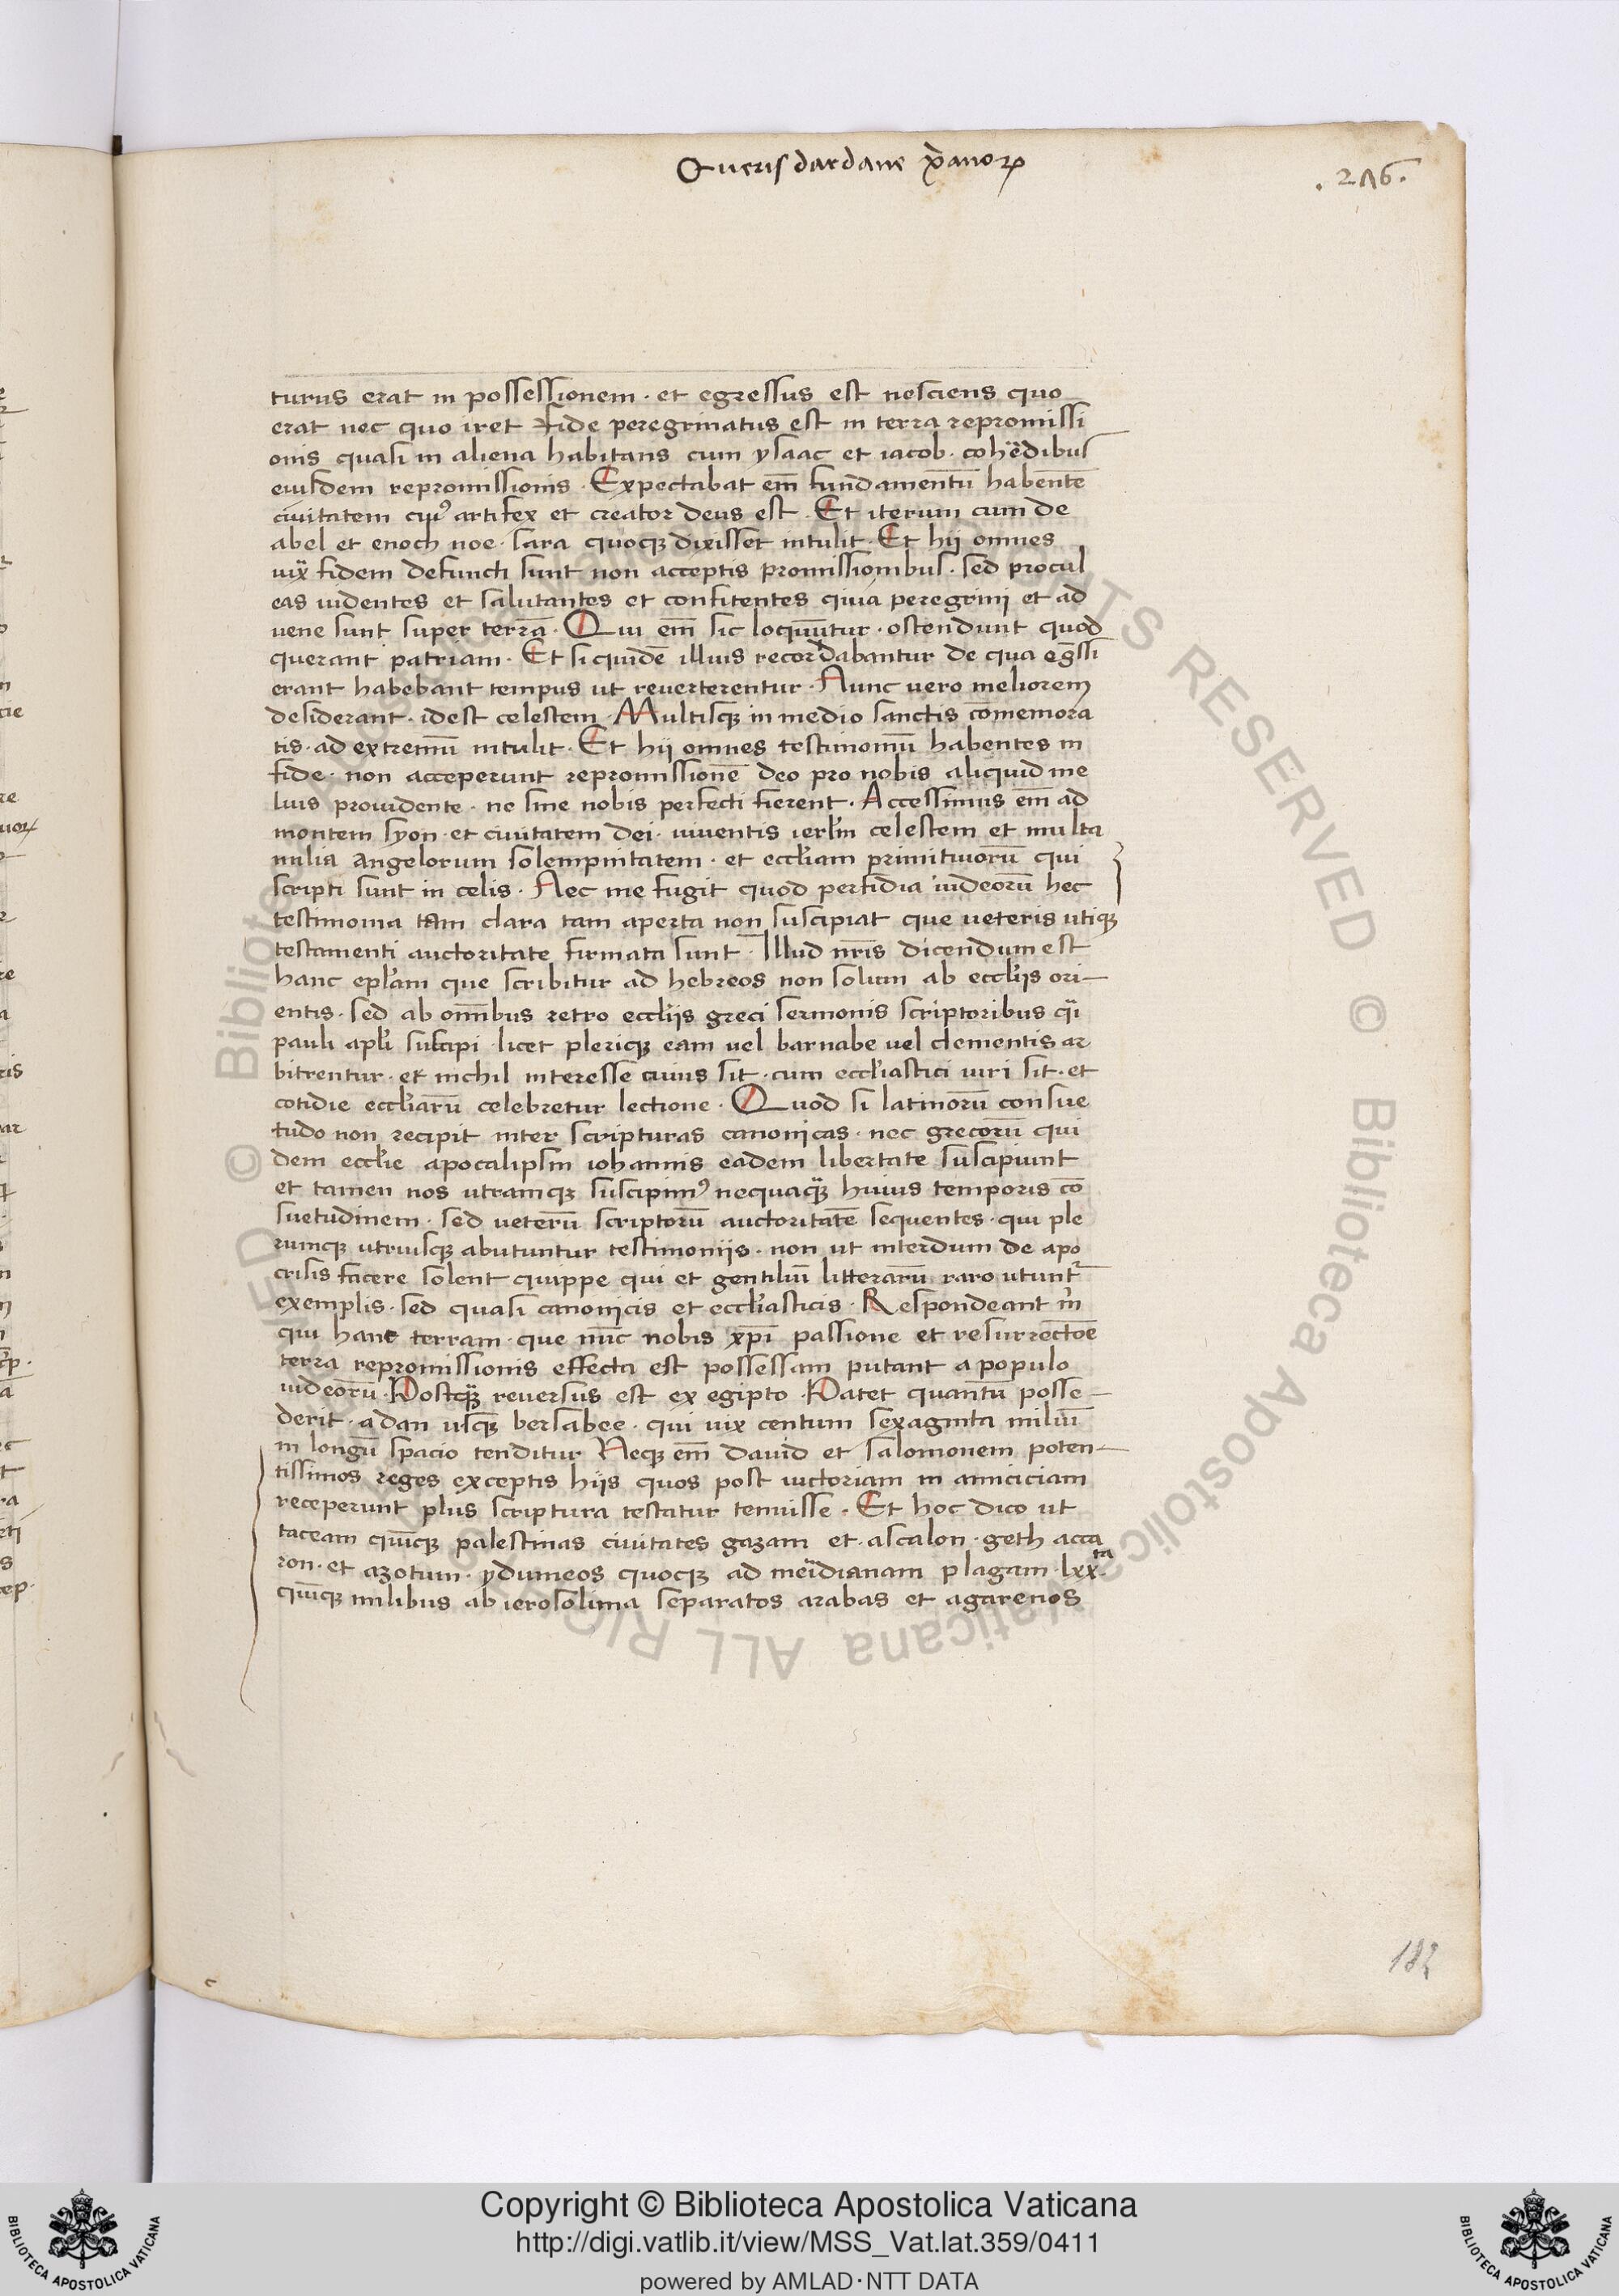 Queris dardane xp̄anoꝝ
.2Λ6.
turus erat in possessionem · et egressus est nesciens quo
erat nec quo iret fide peregrinatus est in terra repromissi
onis quasi in aliena habitans cum ysaac et iacob · cohe͛dibus
eiusdem repromissionis · Expectabat em̄ fundamentū habentē
civitatem cuiꝰ artifex et creator deus est · Et iterum cum de
abel et enoch noe · sara quoqꝫ dixisset intulit · Et hij omnes
iux̄ fidem defuncti sunt non acceptis promissionibus · sed procul
eas videntes et salutantes et confitentes quia peregrini et ad
vene sunt super terrā · Qui em̄ sic loquūtur · ostendunt quod
querant patriam · Et siquidē illius recordabantur de qua eg̅ssi
erant habebant tempus ut reverterentur · Nunc vero meliorem
desiderant · idest celestem · Multisqꝫ in medio sanctis cōmemora
tis · ad extremū intulit · Et hij omnes testimoniū habentes in
fide · non acceperunt repromissionē deo pro nobis aliquid me
lius providente · ne sine nobis perfecti fierent · Accessimus em̄ ad
montem syon · et civitatem dei · viventis ierl̄m celestem et multa
milia angelorum solempnitatem · et eccl̄iam primitivorū qui
scripti sunt in celis · Nec me fugit quod perfidia iudeorū hec
testimonia tam clara tam aperta non suscipiat que veteris utiqꝫ
testamenti auctoritate firmata sunt · Illud nr̄is dicendum est
hanc epl̄am que scribitur ad hebreos non solum ab eccl̄iis ori-
entis · sed ab om̄ibus retro eccl̄iis greci sermonis scriptoribus q̈i
pauli apl̄i suscipi licet pleriqꝫ eam vel barnabe vel clementis ar
bitrentur · et nichil interesse cuius sit · cum eccl̄iastici viri sit · et
cotidie eccl̄iarū celebretur lectione · Quod si latinorū consue
tudo non recipit inter scripturas canonicas · nec grecorū qui
dem eccl̄ie apocalipsm iohannis eadem libertate suscipiunt
et tamen nos utramqꝫ suscipimꝰ nequaq̈ꝫ huius temporis cō
suetudinem · sed veterū scriptorū auctoritatē sequentes · qui ple
rumqꝫ utriusqꝫ abutuntur testimoniis · non ut interdum de apo
crisis facere solent quippe qui et gentiliū litterarū raro utunt᷑
exemplis · sed quasi canonicis et eccl̄iasticis · Respondeant m̄
qui hanc terram · que nūc nobis xp̄i passione et resurrectōe
terra repromissionis effecta est possessam putant a populo
iudeorū · Postq̈ꝫ reversus est ex egipto · Patet quantū posse-
derit · adan usqꝫ bersabee · qui vix centum sexaginta miliū
in longū spacio tenditur Neqꝫ em̄ david et salomonem poten-
tissimos reges exceptis hiis quos post victoriam in amiciciam
receperunt plus scriptura testatur tenuisse · Et hoc dico ut
taceam quīcqꝫ palestinas civitates gazam et · ascalon · geth acca
ron · et azotum · ydumeos quoqꝫ ad meridianam plagam · lxxᵗᵃ
quīcqꝫ milibus ab ierosolima separatos arabas et agarenos
182
Copyright © Biblioteca Apostolica Vaticana
http://digi.vatlib.it/view/MSS_Vat.lat.359/0411
powered by AMLAD·NTT DATA
BIBLIOTECA APOSTOLICA VATICANA
BIBLIOTECA APOSTOLICA VATICANA